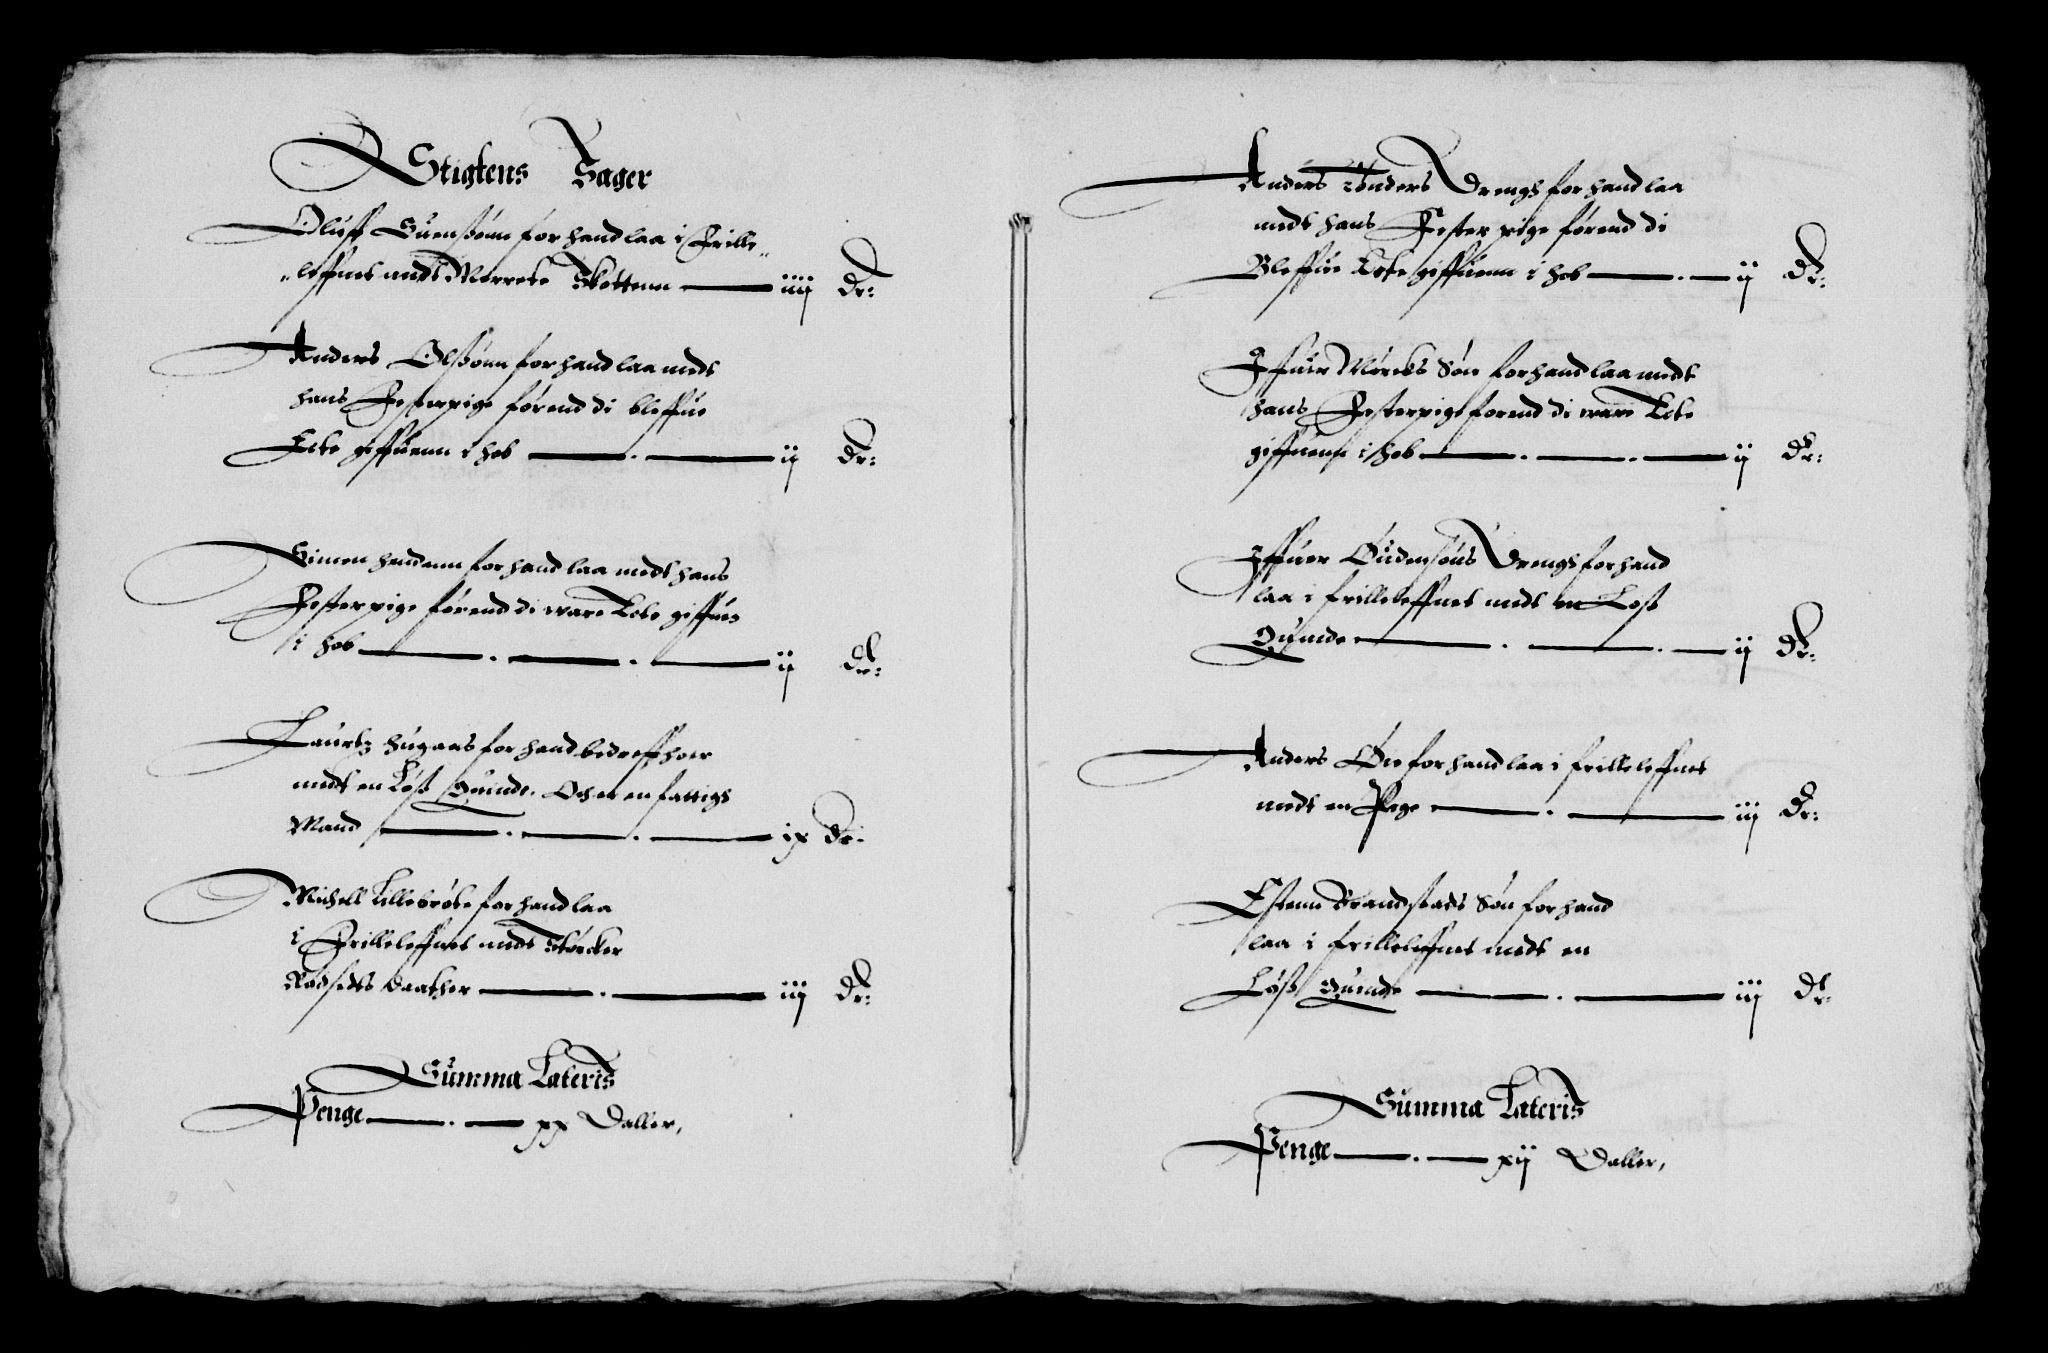 Stigtens Sager
Oluff Suenßønn for hand laa i Frille„
„leffnet medt Merrete Skottenn — iiij dr:
Anders Olßønn for hand laa medt
hans Festerpige førend di bleffue
Ecte giffuenn i hob — . — ij dr:
Simen for hand laa medt hans
Festerpige førend di ware Ecte giffuen
i hob — . — . — ij dr:
Lauretz for hand bedreff hoer
medt en Løß Quinde. Och er en fattigh
Mand — . — . — ix dr:
Michell Lillebröle for hand laa
i Frilleleffnet medt
Rødsetts daather — . — iij dr:
Summa Lateris
Penge — . — xx Daller,
Anders Tønders Drengh for hand laa
medt hans Fester pige førend di
Bleffue Ecte giffuenn i hob — . — ij dr:
Iffuer Mørcks Søn for hand laa medt
hans Festerpige førend di ware Ecte
giffuenn i hob — . — . — ij dr:
Iffuer Øudensøns Drengh for hand
laa i frilleleffnet medt en Løß
Quinde — . — . — ij dr:
Anders Øie for hand laa i frilleleffnet
medt en Pige — . — iij dr:
Estenn Brandstads Søn for hand
laa i frilleleffnet medt en
Løß Quinde — . — iij dr:
Summa Lateris
Penge — . — xij Daller,